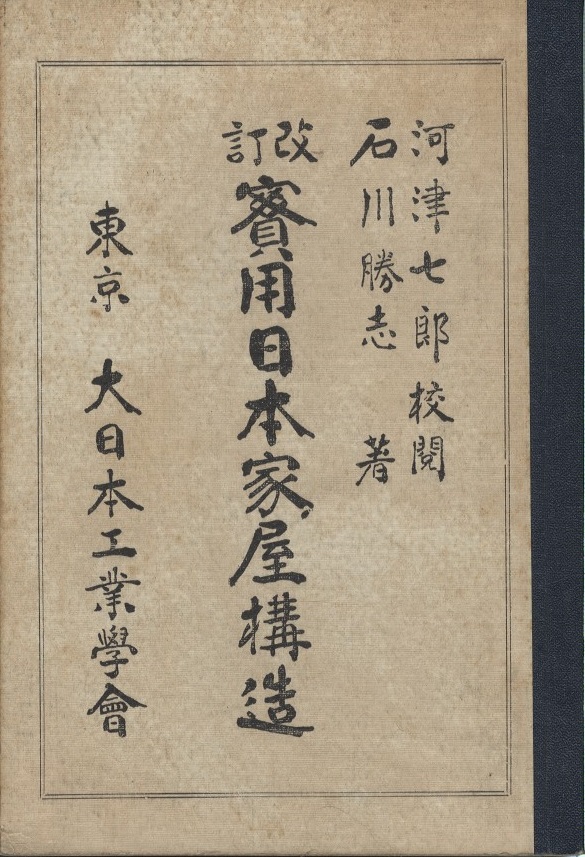 河津七郎校閲
石川勝志 著
改訂 實用日本家屋構造
東京 大日本工業學會